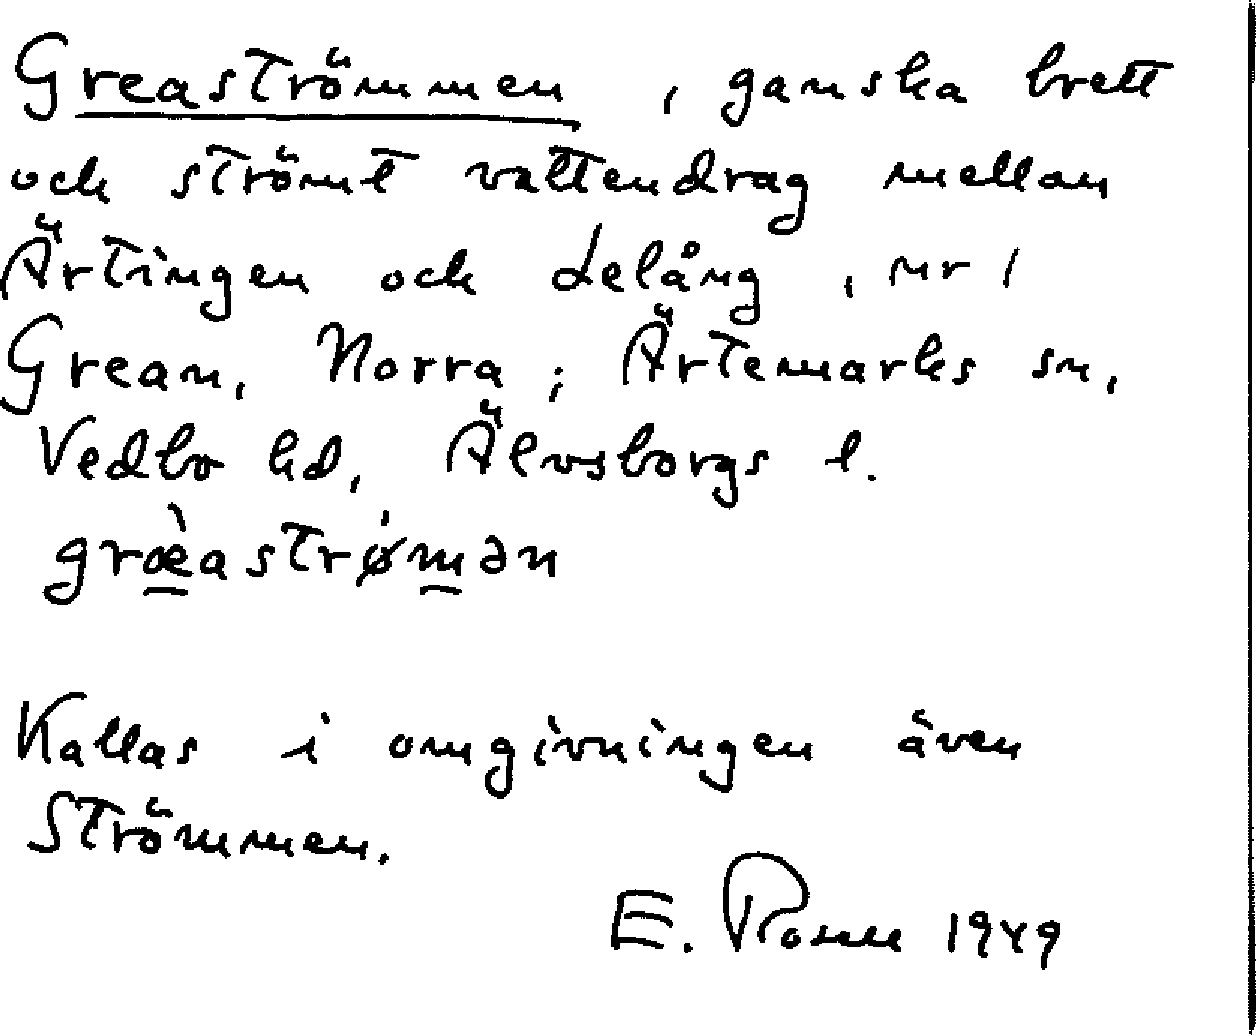 Greaströmmen, ganska brett
och strömt vattendrag mellan
Ärtingen och Lelång, nr 1
Grean, Norra; Ärtemarks sn,
Vedbo hd, Älvsborgs l.
græ̀astrø̍mən
Kallas i omgivningen även
Strömmen.
E. 1949